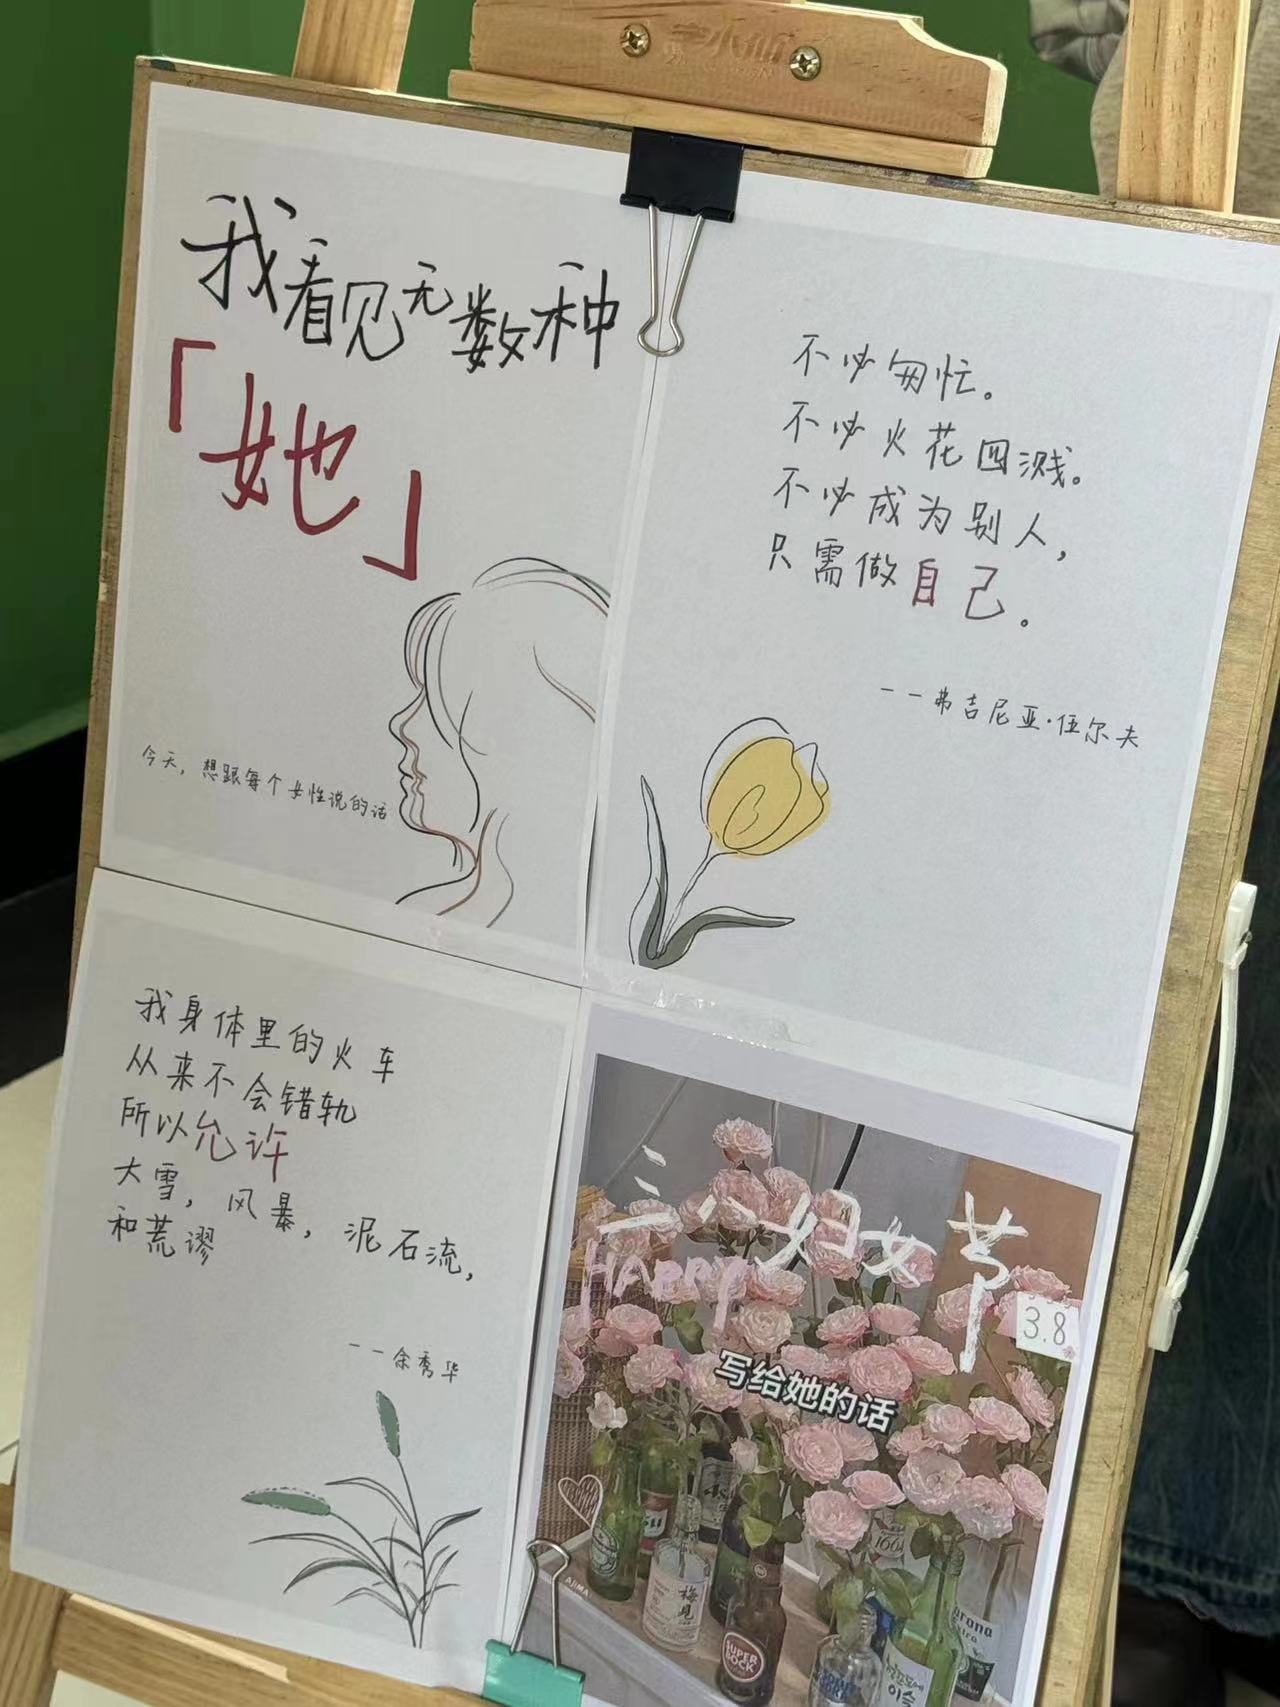 我看见无数种
「她」
今天，想跟每个女性说的话
不必匆忙。
不必火花四溅。
不必成为别人，
只需做自己。
——弗吉尼亚·伍尔夫
我身体里的火车
从来不会错轨
所以允许
大雪，风暴，泥石流，
和荒谬
——余秀华
三八妇女节
HAPPY
3.8
写给她的话
梅見
SUPER
BOCK